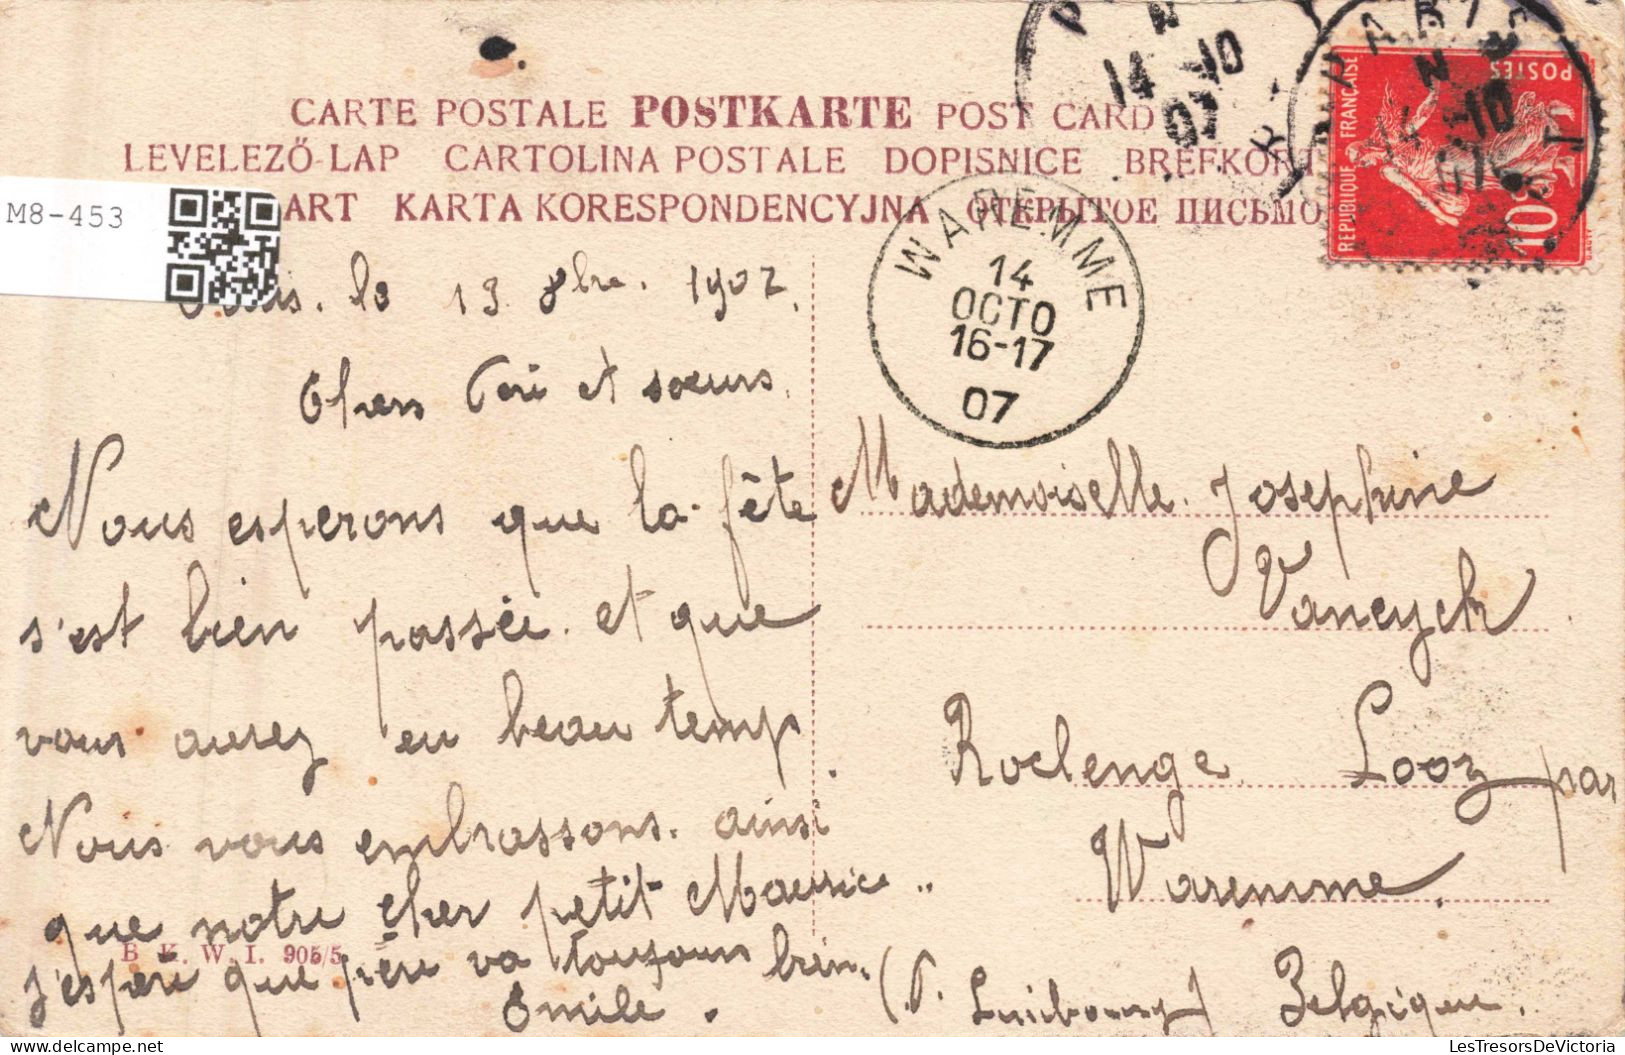 CARTE POSTALE POSTKARTE POST CARD
LEVELEZŐ-LAP CARTOLINA POSTALE DOPISNICE BREFKORT
ART KARTA KORESPONDENCYJNA ОТКРЫТОЕ ПИСЬМО
M8-453
14 10
07
REPUBLIQUE FRANÇAISE
POSTES
10c
WAREMME
14
OCTO
16-17
07
le 13 8bre. 1907.
Chers Péré et sœurs.
Nous esperons que la fête
s'est bien passée et que
vous aurez eu beau temps.
Nous vous embrassons. ainsi
que notre cher petit Maurice..
j'espère que père va toujours bien.
Emile.
B. K. W. I. 905/5
Mademoiselle Josephine
Vaneyck
Roclenge Looz par
Waremme.
(P. Limbourg) Belgique.
LesTresorsDeVictoria